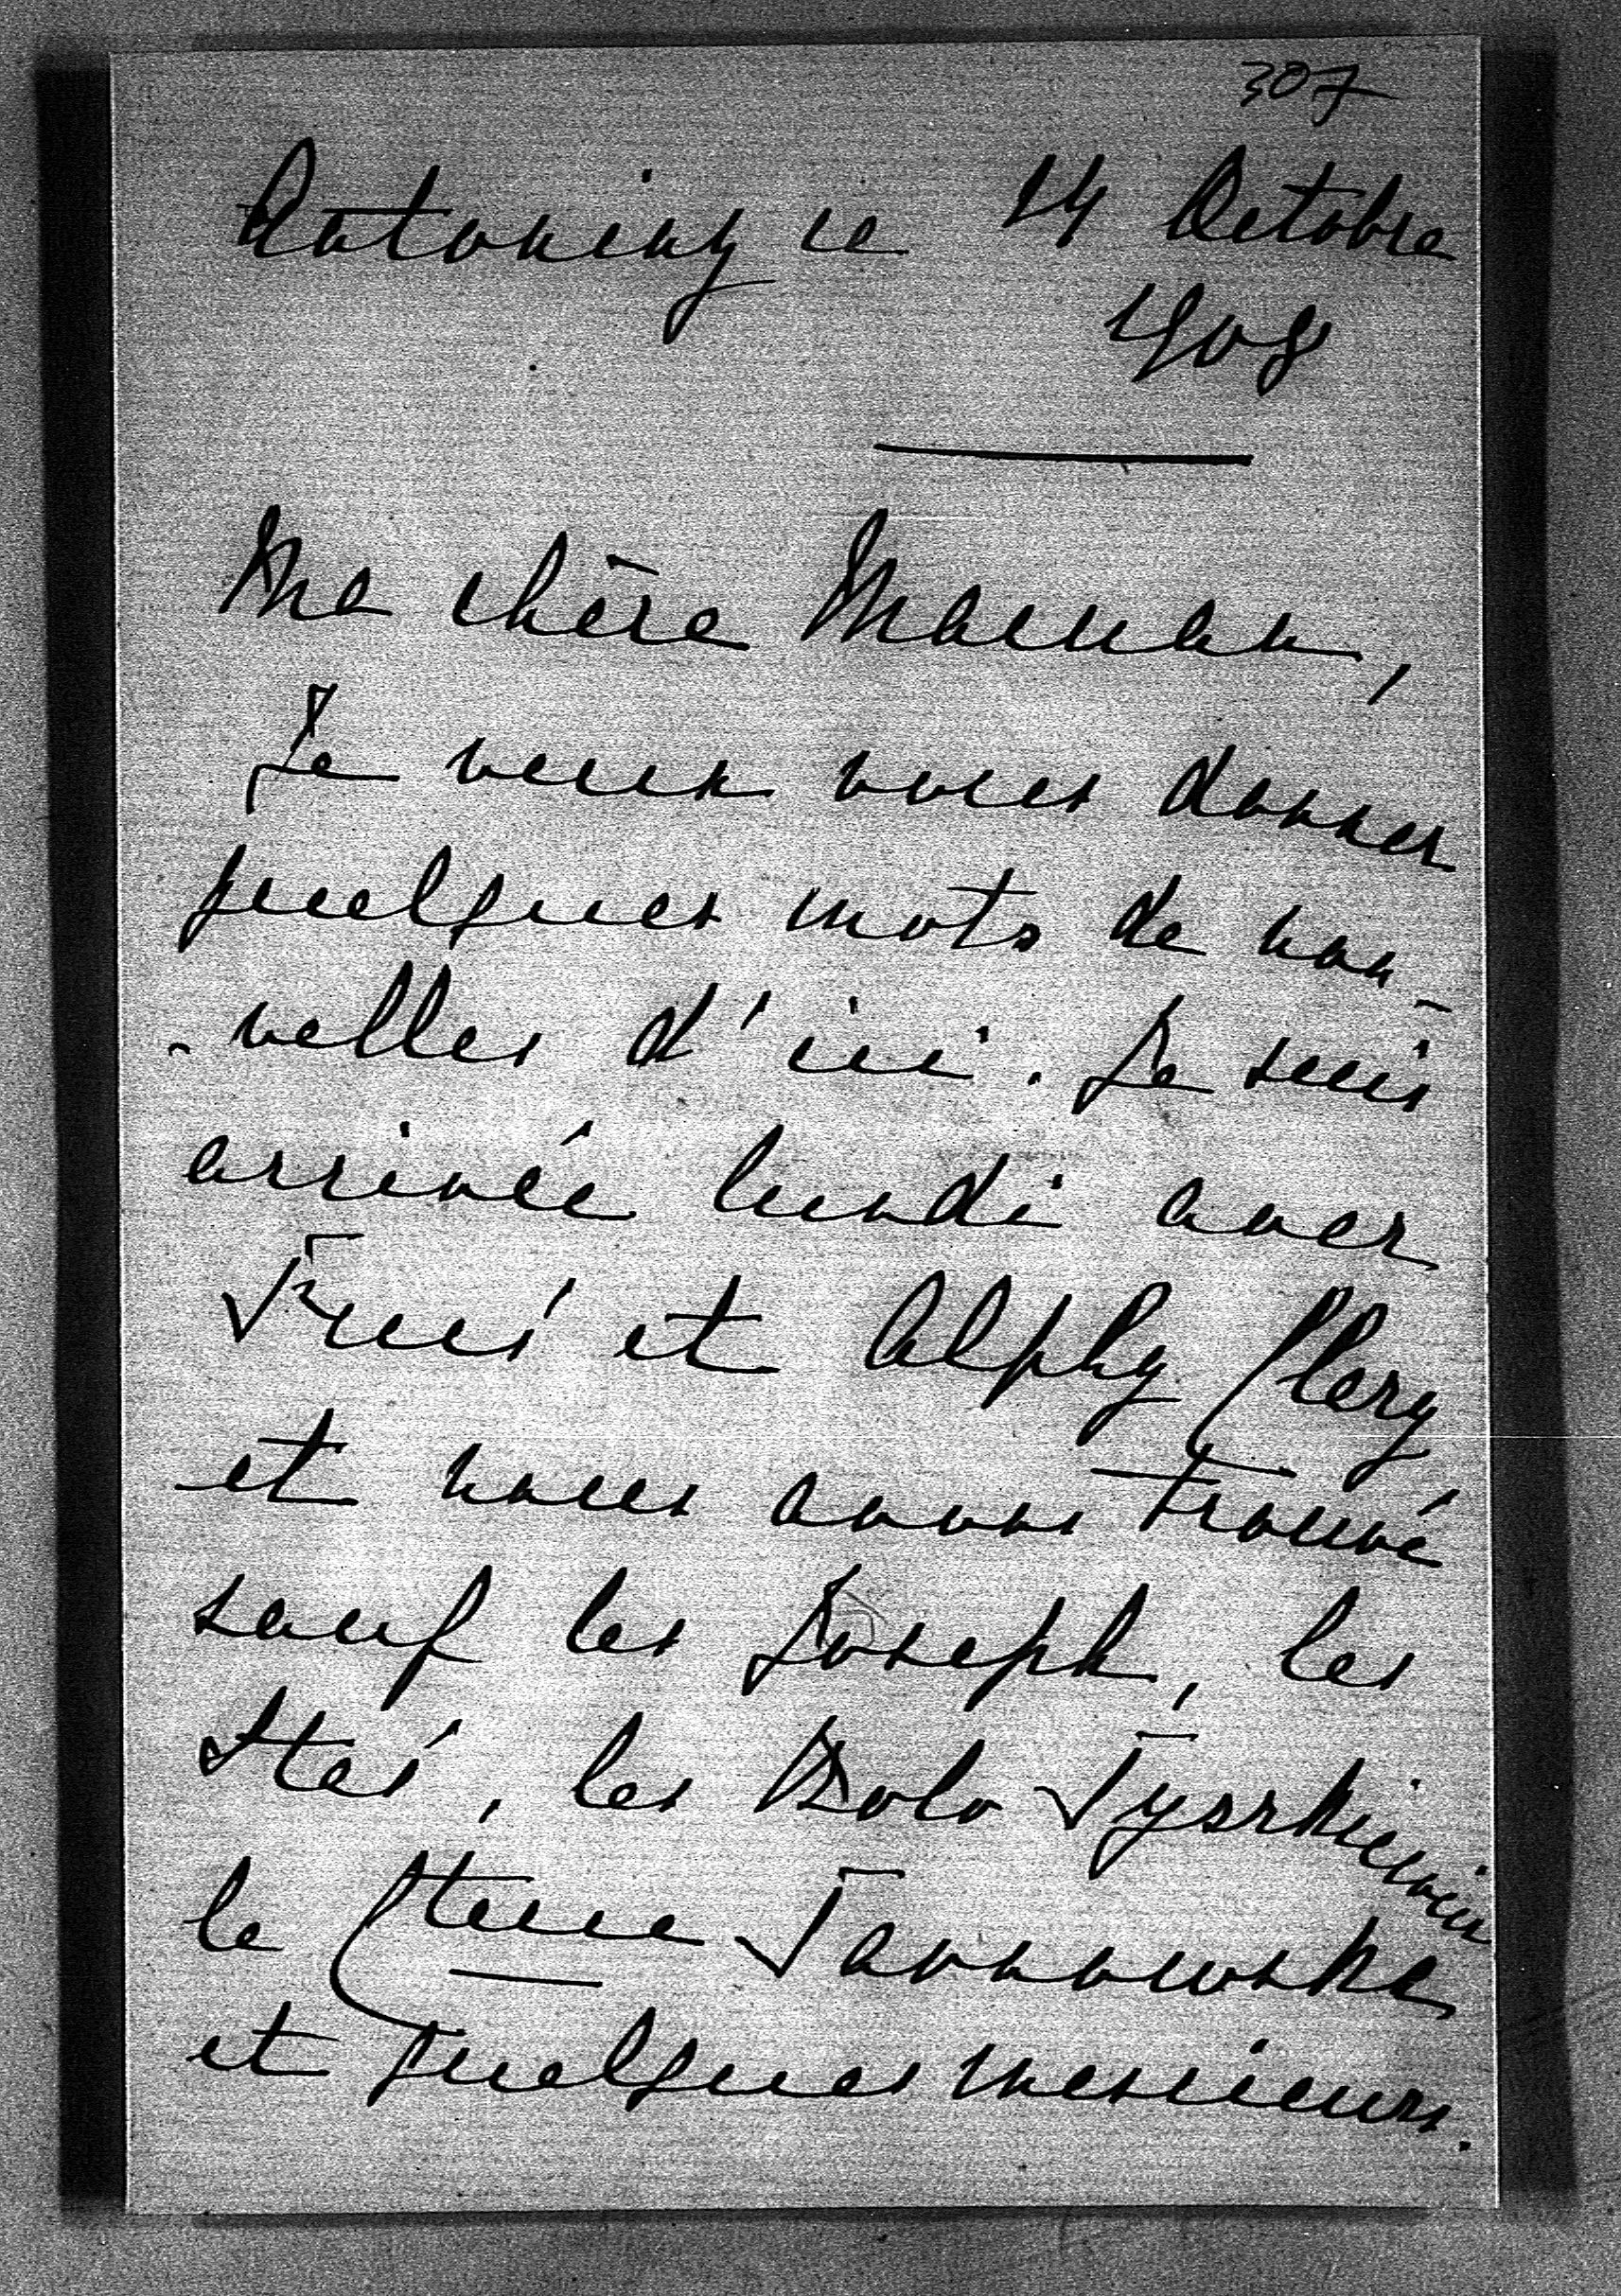 307
Antoniny ce 14 Octobre
1908
Ma chère Maman,
Je veux vous donner
quelques mots de nou-
-velles d'ici. Je suis
arrivée lundi avec
et Alphy Clary
et nous avons trouvé
sauf les Joseph, les
les Bolo Tyszkiewicz
le Tarnowska
et quelques messieurs.